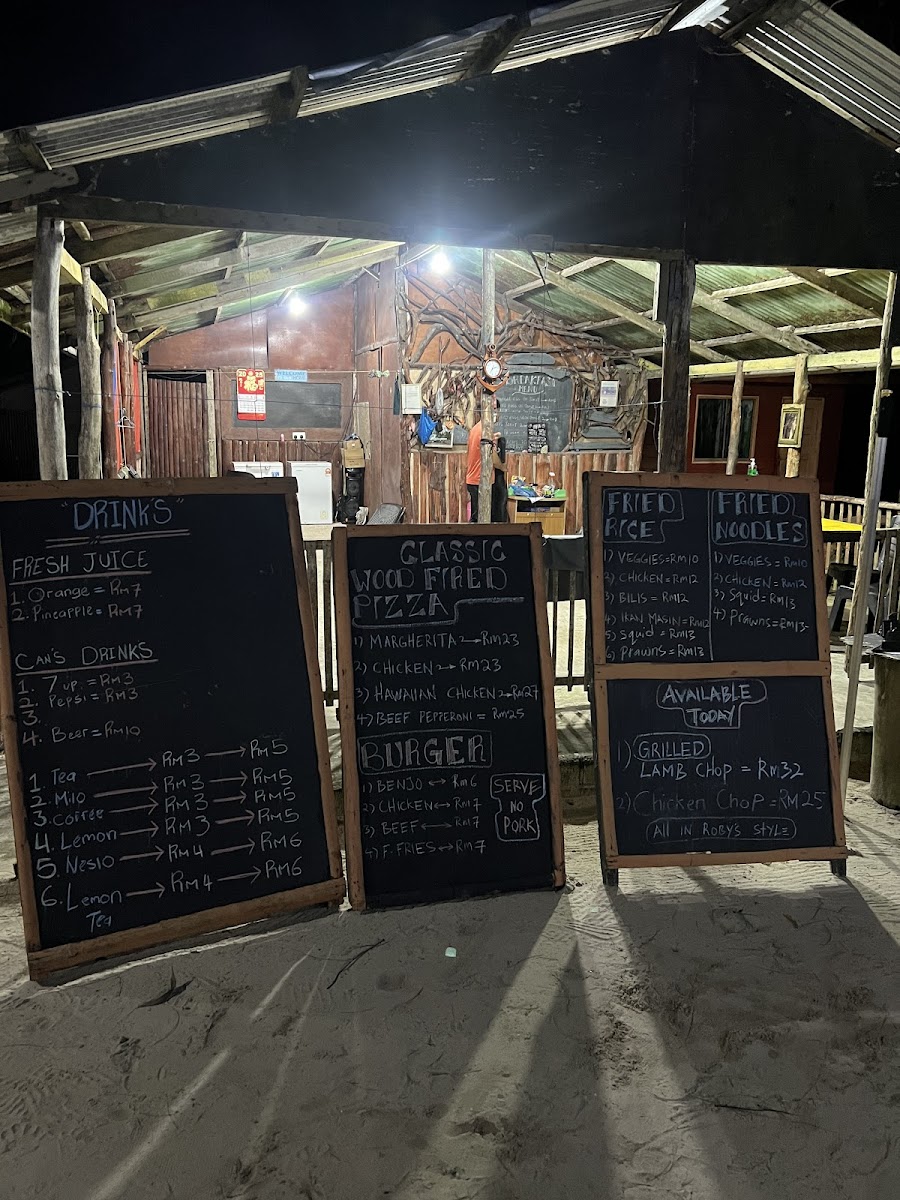 2025
BREAKFAST
MENU
"DRINKS"
FRESH JUICE
1. Orange = Rm7
2. Pineapple = Rm7
CAN'S DRINKS
1. 7 up = Rm3
2. Pepsi = Rm3
3.
4. Beer = Rm10
1. Tea → Rm3 → Rm5
2. Milo → Rm3 → Rm5
3. Coffee → Rm3 → Rm5
4. Lemon → Rm3 → Rm5
5. Neslo → Rm4 → Rm6
6. Lemon → Rm4 → Rm6
Tea
CLASSIC
WOOD FIRED
PIZZA
1) MARGHERITA → Rm23
2) CHICKEN → Rm23
3) HAWAIIAN CHICKEN → Rm27
4) BEEF PEPPERONI = Rm25
BURGER
1) BENJO ↔ Rm6
2) CHICKEN ↔ Rm7
3) BEEF ↔ Rm7
4) F. FRIES ↔ Rm7
SERVE
NO
PORK
FRIED
RICE
1) VEGGIES = RM10
2) CHICKEN = RM12
3) BILIS = RM12
4) IKAN MASIN = RM12
5) Squid = RM13
6) Prawns = RM13
FRIED
NOODLES
1) VEGGIES = RM10
2) CHICKEN = RM12
3) Squid = RM13
4) Prawns = RM13
AVAILABLE
TODAY
1) GRILLED
LAMB CHOP = Rm32
2) Chicken Chop = RM25
ALL IN ROBY'S STYLE